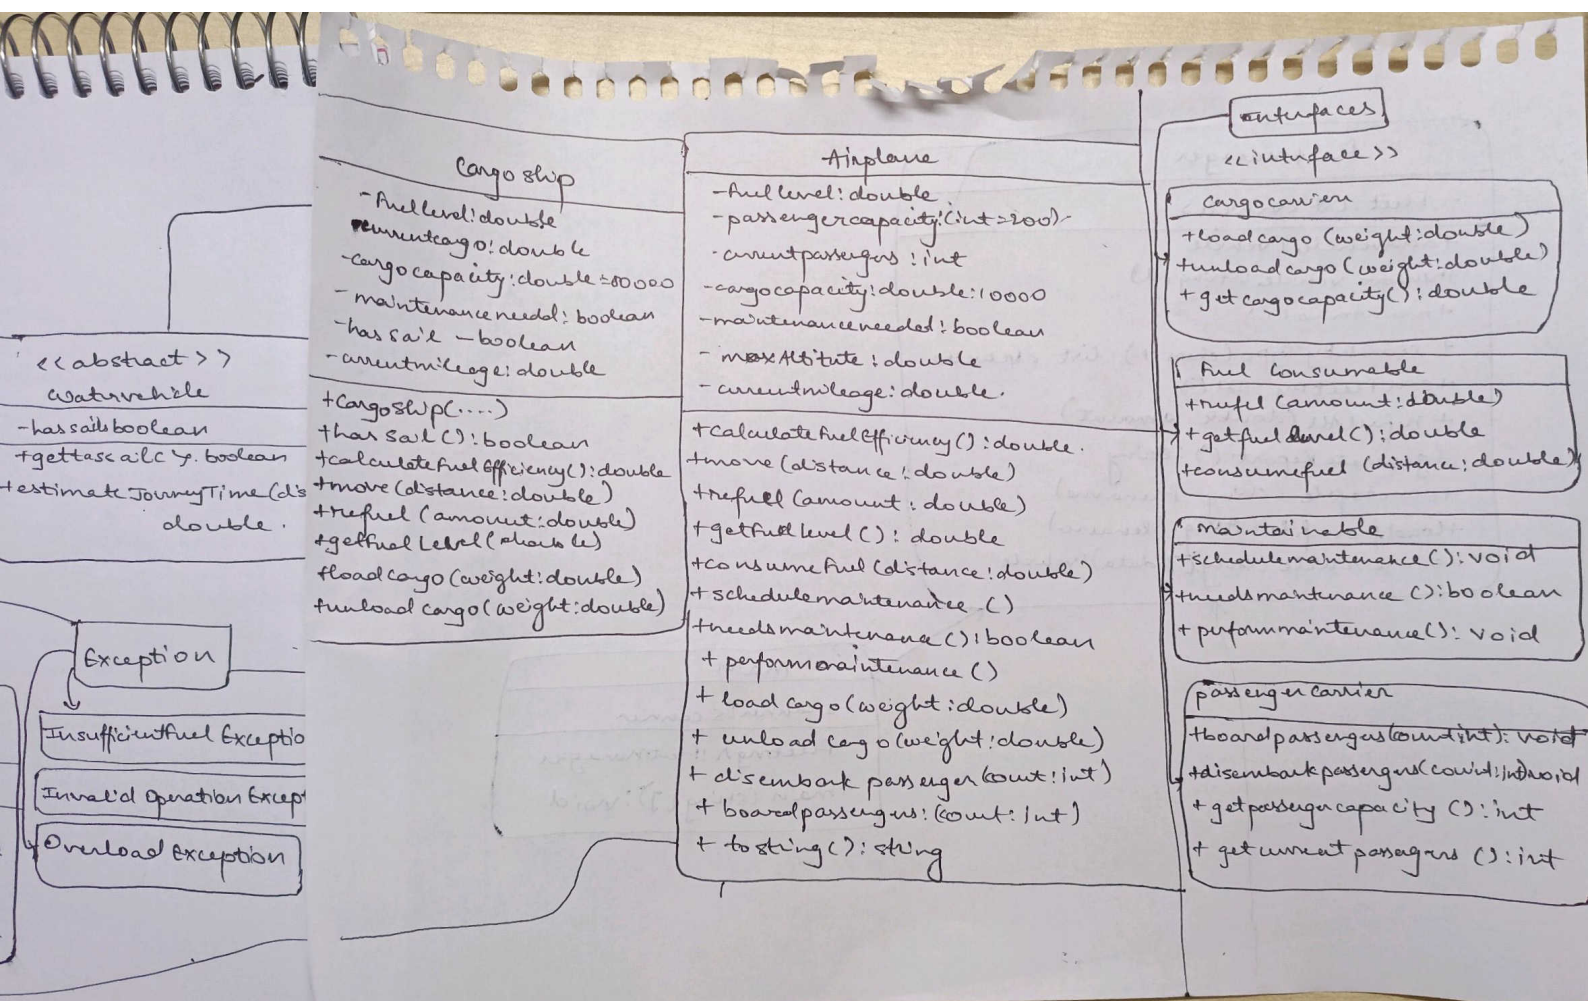 <<abstract>>
watervehicle
-hassail:boolean
+gethassail():boolean
+estimateJourneyTime(dis
double.
Exception
InsufficientFuel Exceptio
Invalid Operation Except
Overload Exception
Cargo ship
-fuellevel:double
-currentcargo:double
-cargocapacity:double=50000
-maintenanceneeded:boolean
-has sail - boolean
-currentmileage:double
+Cargoship(....)
+has sail():boolean
+calculateFuelEfficiency():double
+move(distance:double)
+refuel(amount:double)
+getfuelLevel(double)
+loadcargo(weight:double)
+unload cargo(weight:double)
Airplane
-fuellevel:double
-passengercapacity:(int=200)
-currentpassengers:int
-cargocapacity:double:10000
-maintenanceneeded:boolean
-maxAltitute:double
-currentmileage:double.
+calculateFuelEfficiency():double.
+move(distance:double)
+refuel(amount:double)
+getfuellevel():double
+consumeFuel(distance:double)
+schedulemaintenance()
+needsmaintenance():boolean
+performmaintenance()
+load cargo(weight:double)
+unload cargo(weight:double)
+disembark passenger(count:int)
+boardpassengers:(count:int)
+tostring():string
interfaces
<<interface>>
cargocarrier
+loadcargo(weight:double)
+unloadcargo(weight:double)
+getcargocapacity():double
Fuel Consumable
+refuel(amount:double)
+getfuellevel():double
+consumefuel(distance:double)
maintainable
+schedulemaintenance():void
+needsmaintenance():boolean
+performmaintenance():void
passengercarrier
+boardpassengers(count:int):void
+disembarkpassengers(count:int)void
+getpassengercapacity():int
+getcurrentpassengers():int